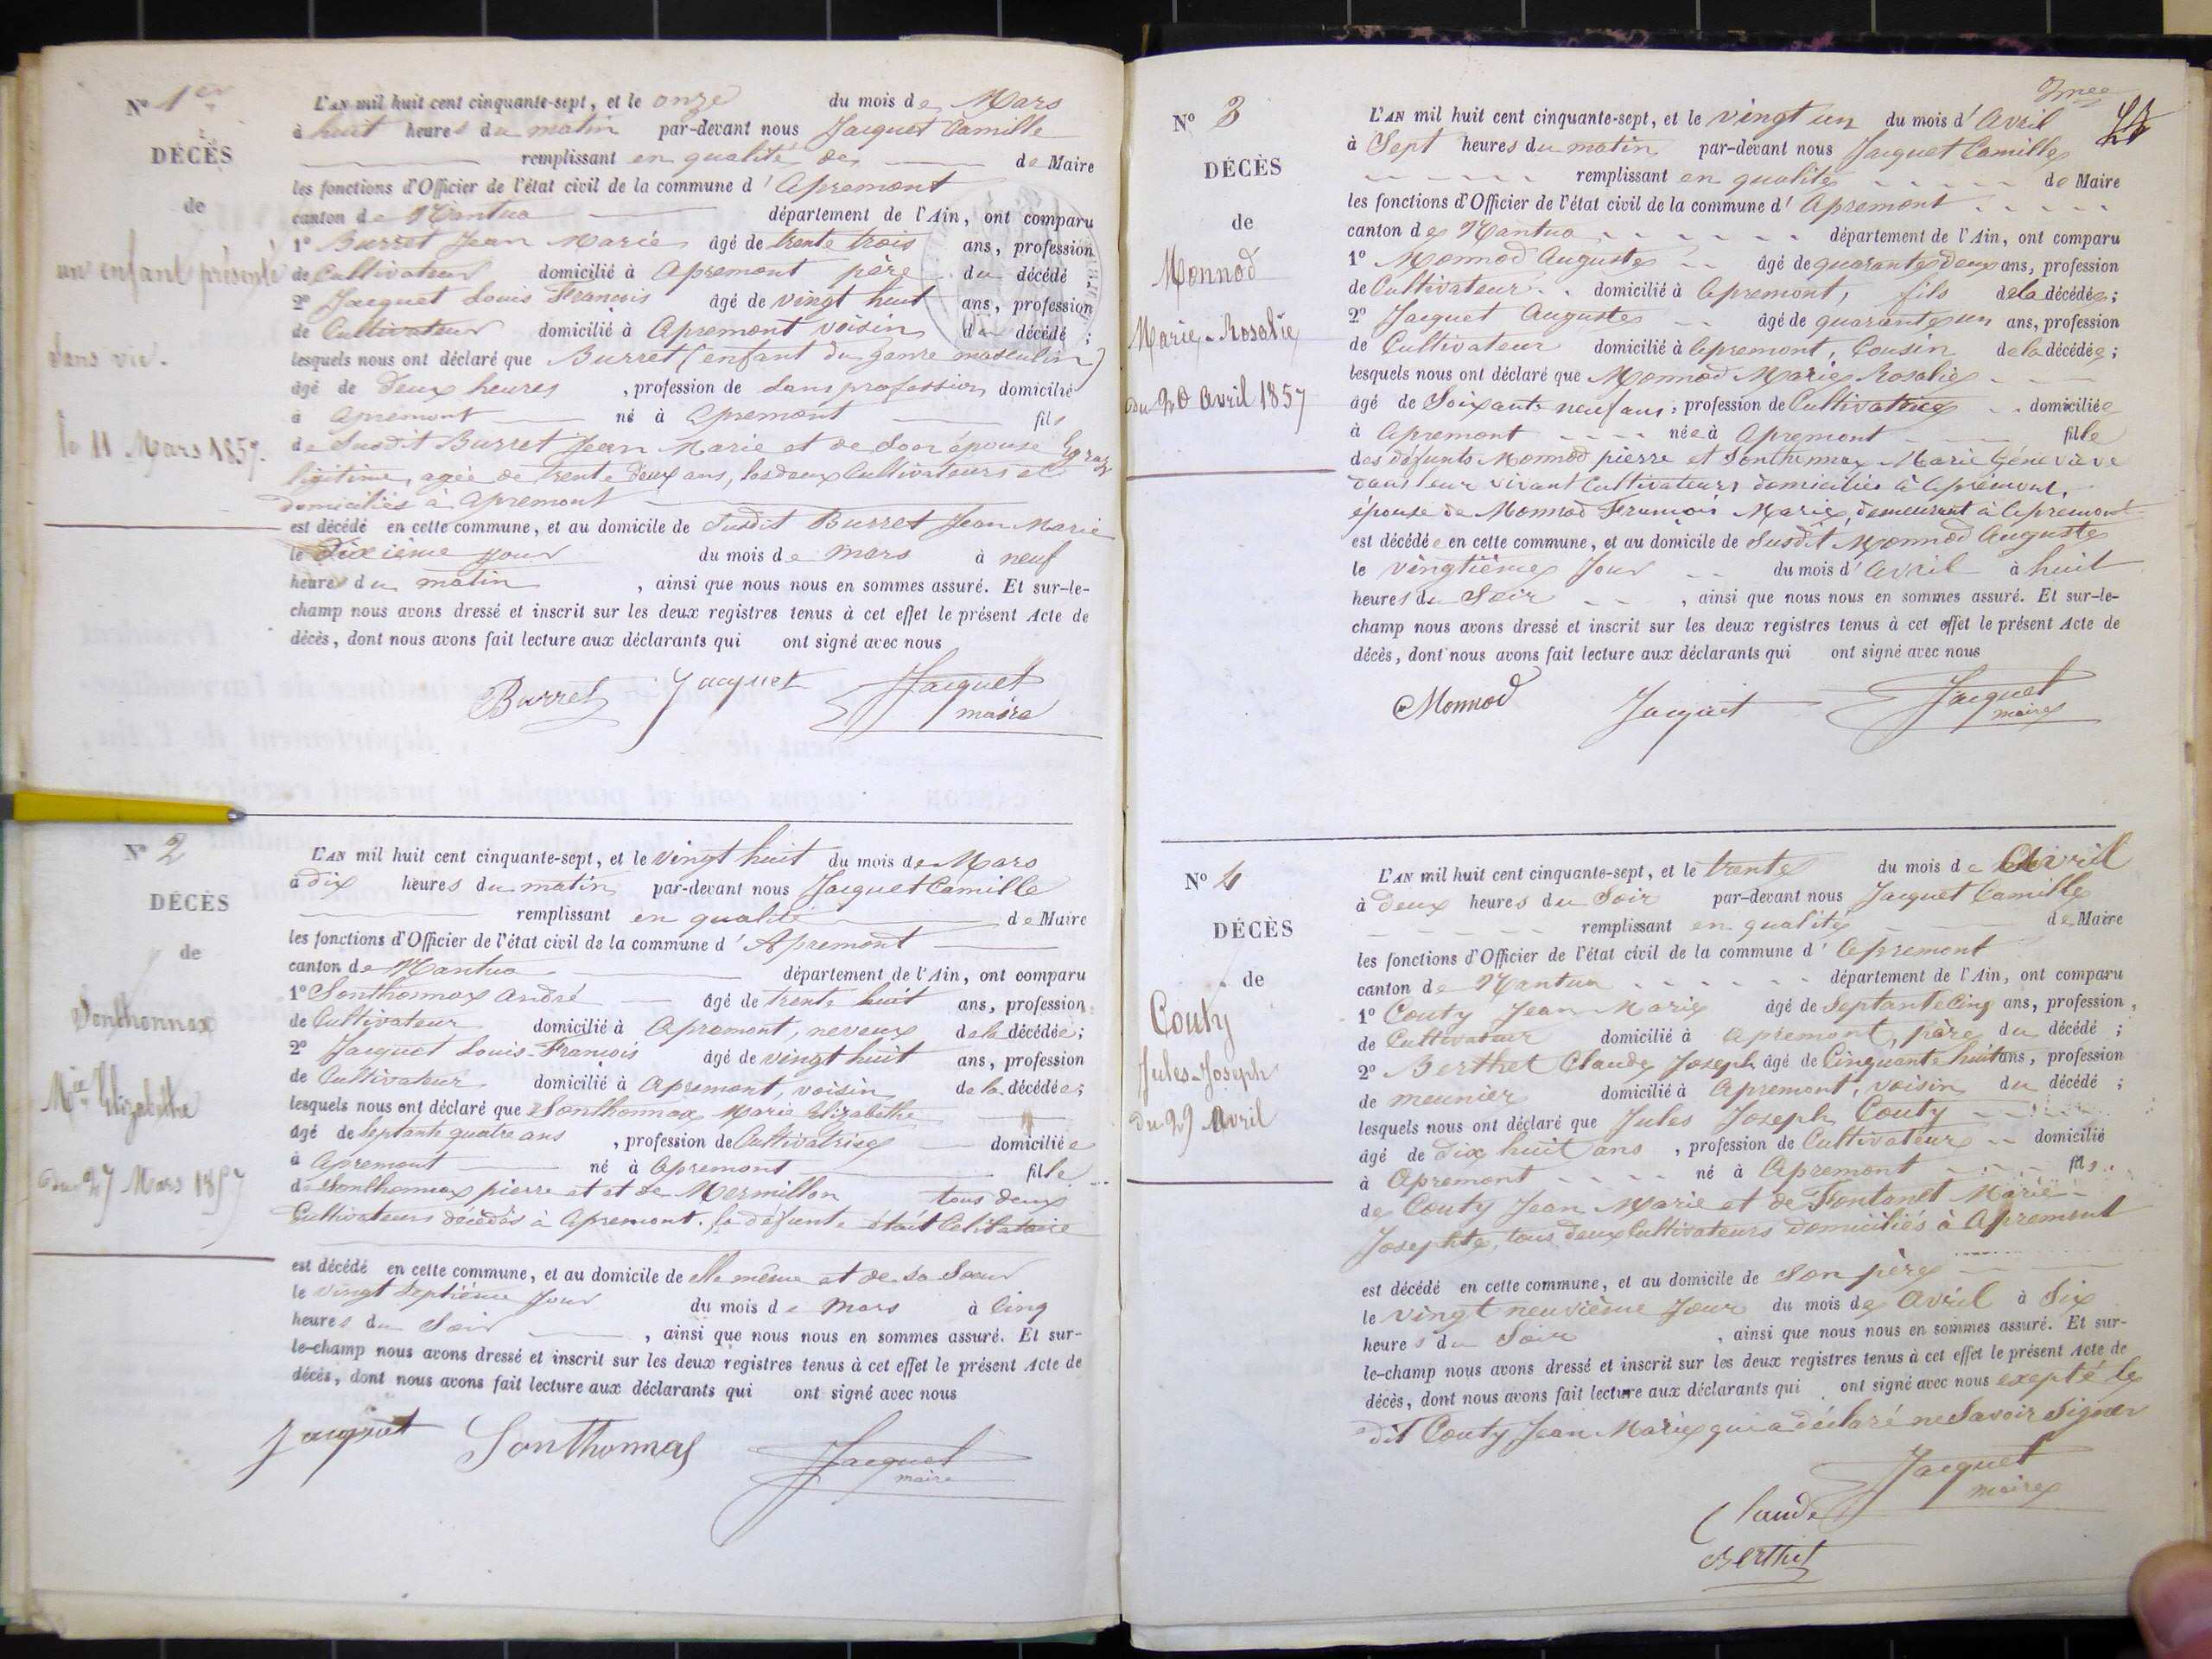 N° 1er
DÉCÈS
de
un enfant présenté
sans vie.
le 11 Mars 1857.
L'AN mil huit cent cinquante-sept, et le onze du mois de Mars
à huit heures du matin par-devant nous Jacquet Camille
remplissant en qualité de de Maire
les fonctions d'Officier de l'état civil de la commune d' Apremont
canton de Nantua département de l'Ain, ont comparu
1° Burret Jean Marie âgé de trente trois ans, profession
de Cultivateur domicilié à Apremont père du décédé
2° Jacquet Louis François âgé de vingt huit ans, profession
de Cultivateur domicilié à Apremont voisin du décédé ;
lesquels nous ont déclaré que Burret (enfant du genre masculin)
âgé de deux heures , profession de sans profession domicilié
à Apremont né à Apremont fils
de Susdit Burret Jean Marie et de son épouse
légitime, agée de trente deux ans, les deux Cultivateurs et
domiciliés à Apremont
est décédé en cette commune, et au domicile de Susdit Burret Jean Marie
le Dixième jour du mois de mars à neuf
heures du matin , ainsi que nous nous en sommes assuré. Et sur-le-
champ nous avons dressé et inscrit sur les deux registres tenus à cet effet le présent Acte de
décès, dont nous avons fait lecture aux déclarants qui ont signé avec nous
Burret Jacquet Jacquet
maire
N° 2
DÉCÈS
de
Sonthonnax
Mie Elizabethe
du 27 Mars 1857
L'AN mil huit cent cinquante-sept, et le vingt huit du mois de Mars
à dix heures du matin par-devant nous Jacquet Camille
remplissant en qualité de Maire
les fonctions d'Officier de l'état civil de la commune d' Apremont
canton de Nantua département de l'Ain, ont comparu
1° Sonthonnax André âgé de trente huit ans, profession
de Cultivateur domicilié à Apremont, neveux de la décédée;
2° Jacquet Louis-François âgé de vingt huit ans, profession
de Cultivateur domicilié à Apremont, voisin de la décédée;
lesquels nous ont déclaré que Sonthonnax Marie Elizabethe
âgé de Septante quatre ans , profession de Cultivatrice domiciliée
à Apremont né à Apremont fille
de Sonthonnax pierre et et de Mermillon tous deux
Cultivateurs décédés à Apremont. la défunte était Celibataire
est décédé en cette commune, et au domicile de elle même et de sa Soeur
le vingt Septième jour du mois de mars à Cinq
heures du Soir , ainsi que nous nous en sommes assuré. Et sur-
le-champ nous avons dressé et inscrit sur les deux registres tenus à cet effet le présent Acte de
décès, dont nous avons fait lecture aux déclarants qui ont signé avec nous
Jacquet Sonthonnax Jacquet
maire
N° 3
DÉCÈS
de
Monnod
Marie-Rosalie
du 20 Avril 1857
L'AN mil huit cent cinquante-sept, et le vingt un du mois d' Avril
à Sept heures du matin par-devant nous Jacquet Camille
remplissant en qualité de Maire
les fonctions d'Officier de l'état civil de la commune d' Apremont
canton de Nantua département de l'Ain, ont comparu
1° Monnod Auguste âgé de quarante deux ans, profession
de Cultivateur domicilié à Apremont, fils de la décédée;
2° Jacquet Auguste âgé de quarante un ans, profession
de Cultivateur domicilié à Apremont, Cousin de la décédée;
lesquels nous ont déclaré que Monnod Marie Rosalie
âgé de Soixante neuf ans, profession de Cultivatrice domiciliée
à Apremont née à Apremont fille
des défunts Monnod pierre et Sonthonnax Marie Géneviève
dans leur vivant Cultivateurs domiciliés à Apremont,
épouse de Monnod François Marie, demeurant à Apremont
est décédée en cette commune, et au domicile de Susdit Monnod Auguste
le vingtième Jour du mois d' Avril à huit
heures du Soir , ainsi que nous nous en sommes assuré. Et sur-le-
champ nous avons dressé et inscrit sur les deux registres tenus à cet effet le présent Acte de
décès, dont nous avons fait lecture aux déclarants qui ont signé avec nous
Monnod Jacquet Jacquet
maire
N° 4
DÉCÈS
de
Couty
Jules-Joseph
du 29 Avril
L'AN mil huit cent cinquante-sept, et le trente du mois de Avril
à deux heures du Soir par-devant nous Jacquet Camille
remplissant en qualité de Maire
les fonctions d'Officier de l'état civil de la commune d' Apremont
canton de Nantua département de l'Ain, ont comparu
1° Couty Jean Marie âgé de Septante Cinq ans, profession
de Cultivateur domicilié à Apremont, père du décédé ;
2° Berthet Claude Joseph âgé de Cinquante huit ans, profession
de meunier domicilié à Apremont, voisin du décédé ;
lesquels nous ont déclaré que Jules Joseph Couty
âgé de Dix huit ans , profession de Cultivateur domicilié
à Apremont né à Apremont fils
de Couty Jean Marie et de Fontanet Marie-
Josephte, tous deux Cultivateurs domiciliés à Apremont
est décédé en cette commune, et au domicile de Son père
le vingt neuvième Jour du mois de Avril à Six
heures du Soir , ainsi que nous nous en sommes assuré. Et sur-
le-champ nous avons dressé et inscrit sur les deux registres tenus à cet effet le présent Acte de
décès, dont nous avons fait lecture aux déclarants qui ont signé avec nous exepté le
dit Couty Jean Marie qui a déclaré ne Savoir Signer
Jacquet
maire
Claude
Berthet